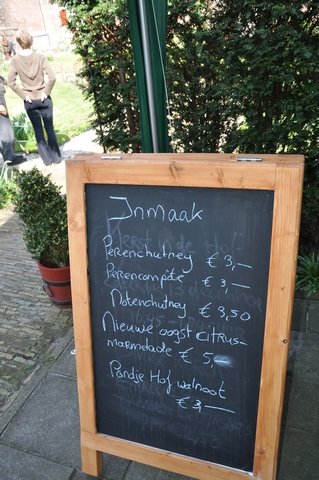 Inmaak
Perenchutney € 3,—
Perencompôte € 3,—
Notenchutney € 3,50
Nieuwe oogst citrus-
marmelade € 5,—
Pondje Hof walnoot
€ 3,—